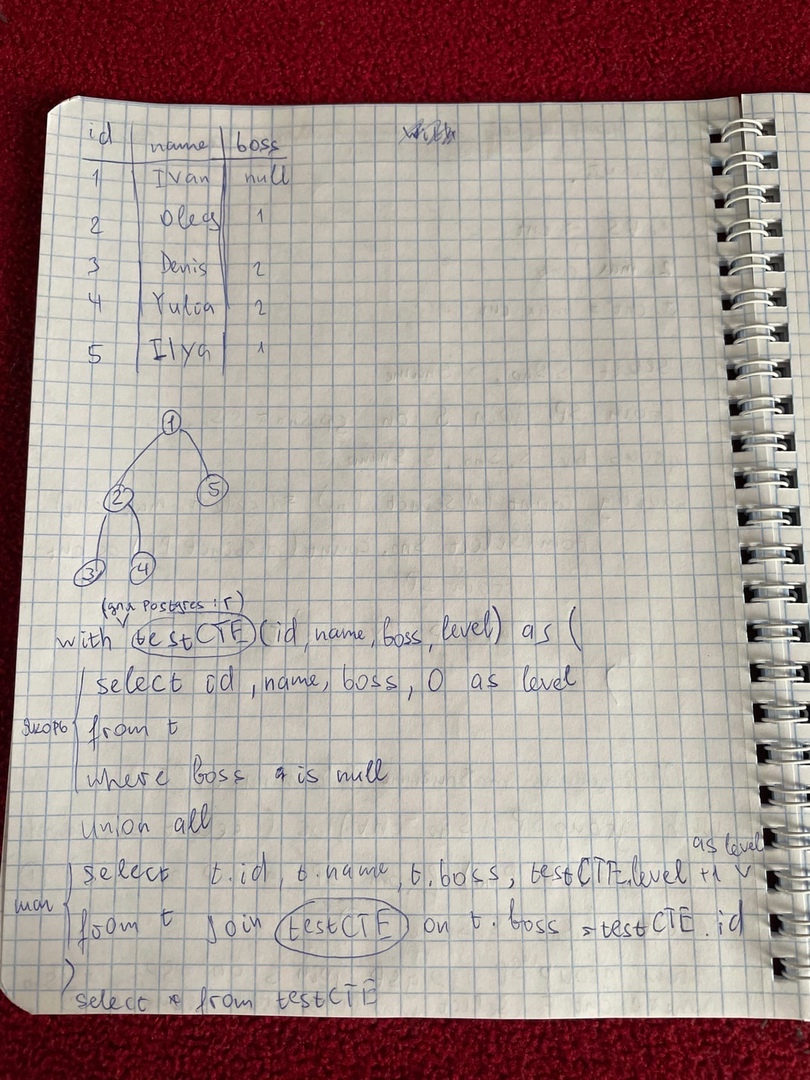 id name boss
1 Ivan null
2 Oleg 1
3 Denis 2
4 Yulia 2
5 Ilya 1
1
2 5
3 4
(для Postgres : r)
with testCTE (id, name, boss, level) as (
select id, name, boss, 0 as level
якорь from t
where boss is null
union all
as level
select t.id, t.name, t.boss, testCTE.level +1
шаг from t join testCTE on t.boss = testCTE.id
)
select * from testCTE